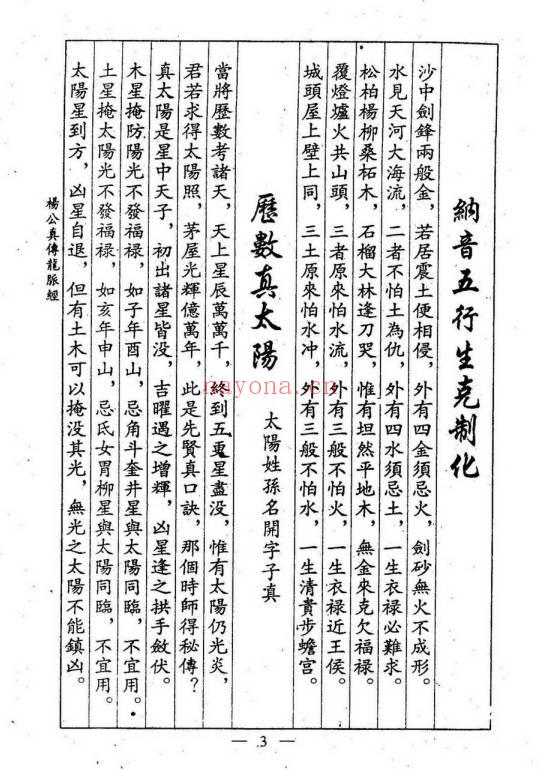 納音五行生克制化
沙中劍鋒兩般金，若居震土便相侵，外有四金須忌火，劍砂無火不成形。
水見天河大海流，二者不怕土為仇，外有四水須忌土，一生衣祿必難求。
松柏楊柳桑柘木，石榴大林逢刀哭，惟有坦然平地木，無金來克欠福祿。
覆燈爐火共山頭，三者原來怕水流，外有三般不怕火，一生衣祿近王侯。
城頭屋上壁上同，三土原來怕水冲，外有三般不怕水，一生清貴步蟾宮。
歷數真太陽
太陽姓孫名開字子真
當將歷數考諸天，天上星辰萬萬千，終到五更星盡没，惟有太陽仍光炎，
君若求得太陽照，茅屋光輝億萬年，此是先賢真口訣，那個時師得秘傳？
真太陽是星中天子，初出諸星皆没，吉曜遇之增輝，凶星逢之拱手斂伏。
木星掩防陽光不發福禄，如子年酉山，忌角斗奎井星與太陽同臨，不宜用。
土星掩太陽光不發福禄，如亥年申山，忌氐女胃柳星與太陽同臨，不宜用。
太陽星到方，凶星自退，但有土木可以掩没其光，無光之太陽不能鎮凶。
楊公真傳龍脈經
— 3 —
nayona.cn